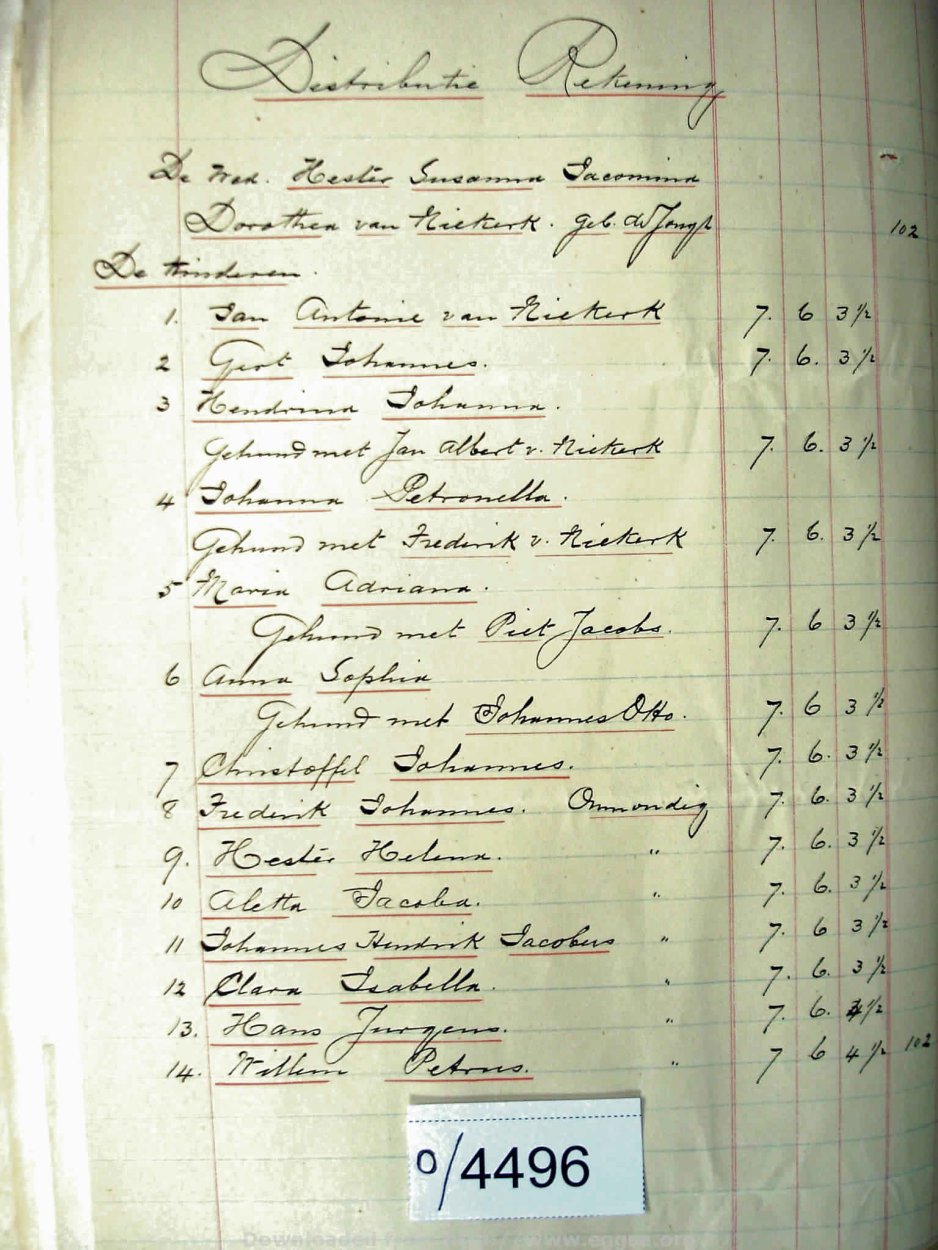 Distributie Rekening
De Wed. Hester Susanna Jacomina
Dorothea van Niekerk. geb. de Jongh 102
De Kinderen.
1. Jan Antonie van Niekerk 7. 6 3 1/2
2 Gert Johannes. 7. 6. 3 1/2
3 Hendrina Johanna.
Gehuwd met Jan Albert v. Niekerk 7. 6. 3 1/2
4 Johanna Petronella.
Gehuwd met Frederik v. Niekerk 7. 6. 3 1/2
5 Maria Adriana.
Gehuwd met Piet Jacobs. 7. 6 3 1/2
6 Anna Sophia
Gehuwd met Johannes Otto. 7. 6 3 1/2
7 Christoffel Johannes. 7. 6. 3 1/2
8 Frederik Johannes. Onmondig 7. 6. 3 1/2
9. Hester Helena. " 7. 6. 3 1/2
10 Aletta Jacoba. " 7. 6. 3 1/2
11 Johannes Hendrik Jacobus " 7. 6 3 1/2
12 Clara Isabella. " 7. 6. 3 1/2
13. Hans Jurgens. " 7. 6. 1/2
14. Willem Petrus. " 7 6 4 1/2 102
0/4496
Downloaded from www.eggsa.org